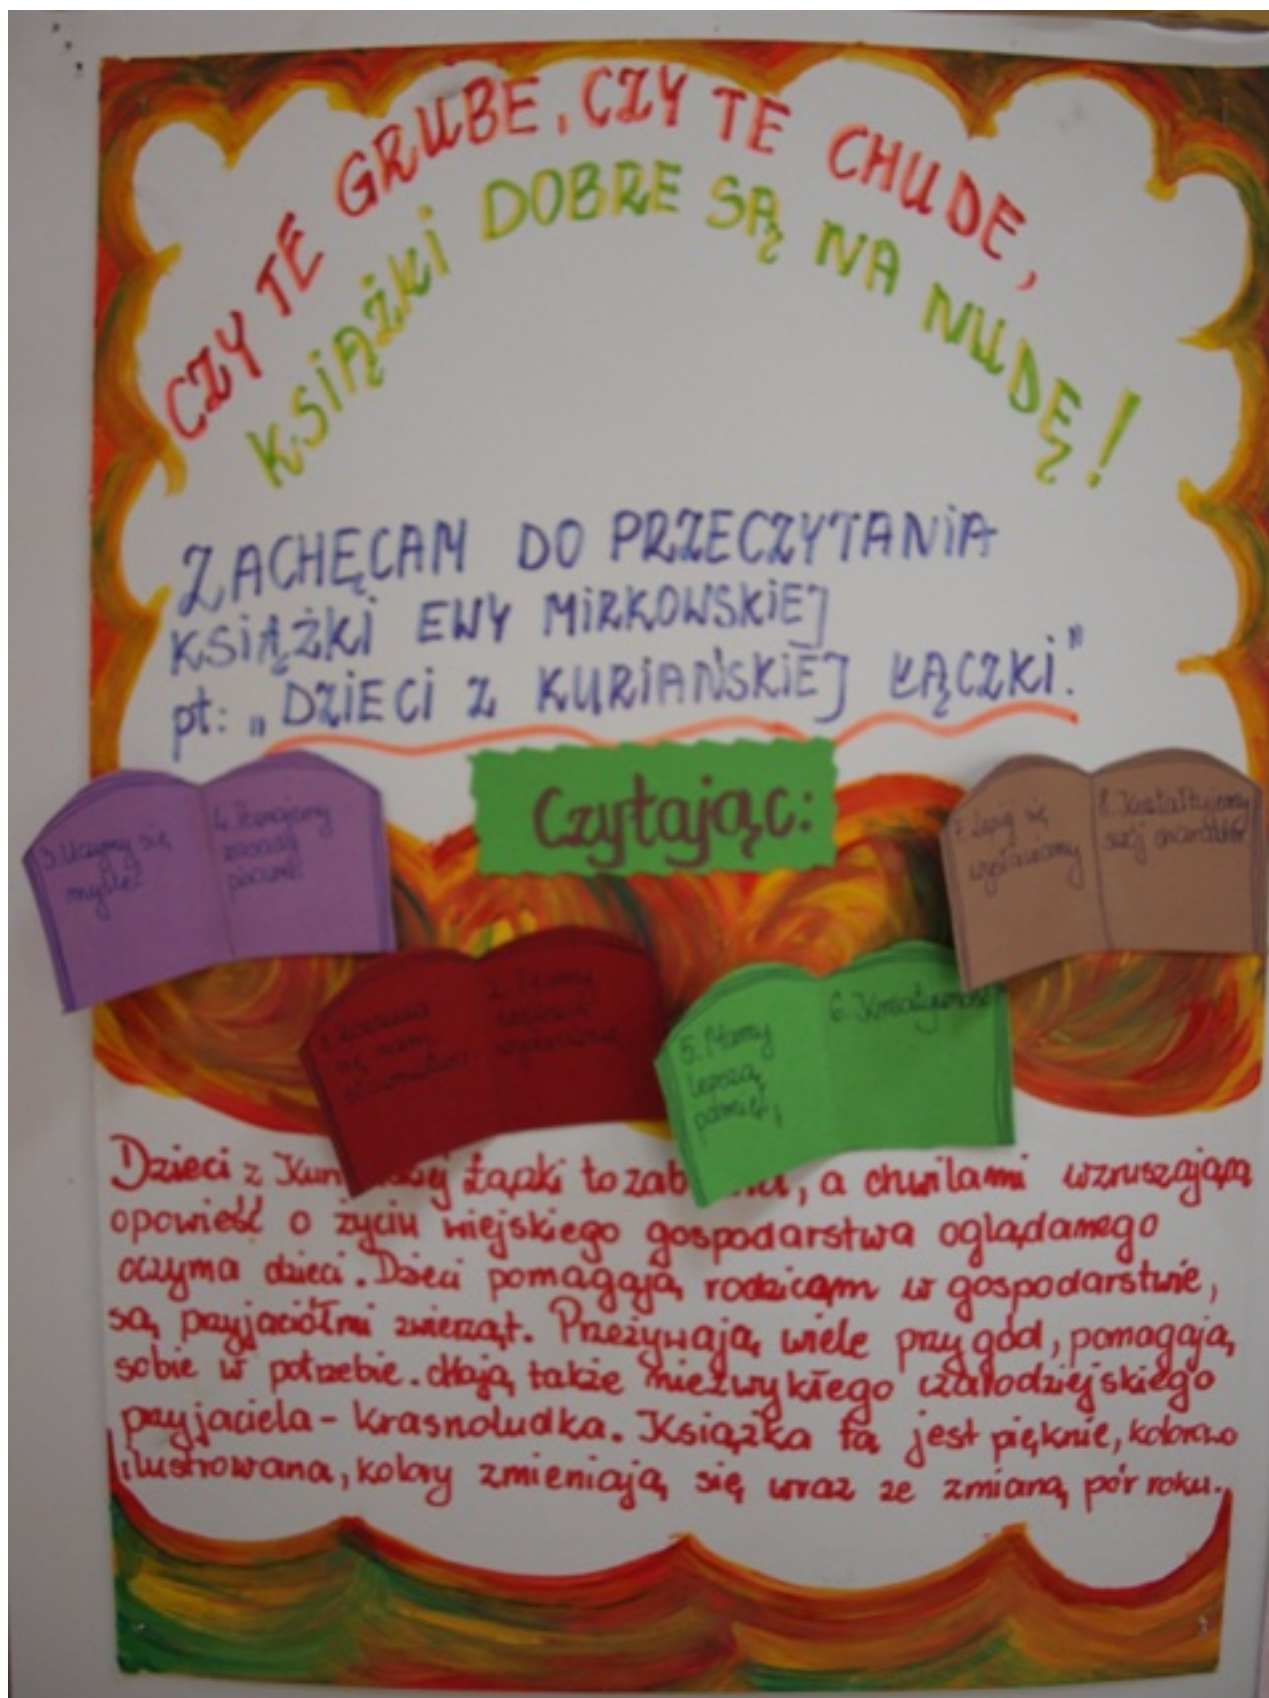 CZY TE GRUBE, CZY TE CHUDE,
KSIĄŻKI DOBRE SĄ NA NUDĘ!
ZACHĘCAM DO PRZECZYTANIA
KSIĄŻKI EWY MIRKOWSKIEJ
pt: „DZIECI Z KURIAŃSKIEJ ŁĄCZKI."
Czytając:
3. Uczymy się
myśleć
4. Poznajemy
zasady
7. Lepiej się
wysławiamy
8. Kształtujemy
swój charakter
1.
się nam
2. Mamy
5. Mamy
lepszą
pamięć,
6. Kreatywność
Dzieci z łączki to, a chwilami wzruszającą
opowieść o życiu wiejskiego gospodarstwa oglądanego
oczyma dzieci. Dzieci pomagają rodzicom w gospodarstwie,
są przyjaciółmi zwierząt. Przeżywają wiele przygód, pomagają
sobie w potrzebie. Mają także niezwykłego czarodziejskiego
przyjaciela - krasnoludka. Książka ta jest pięknie, kolorowo
ilustrowana, kolory zmieniają się wraz ze zmianą pór roku.